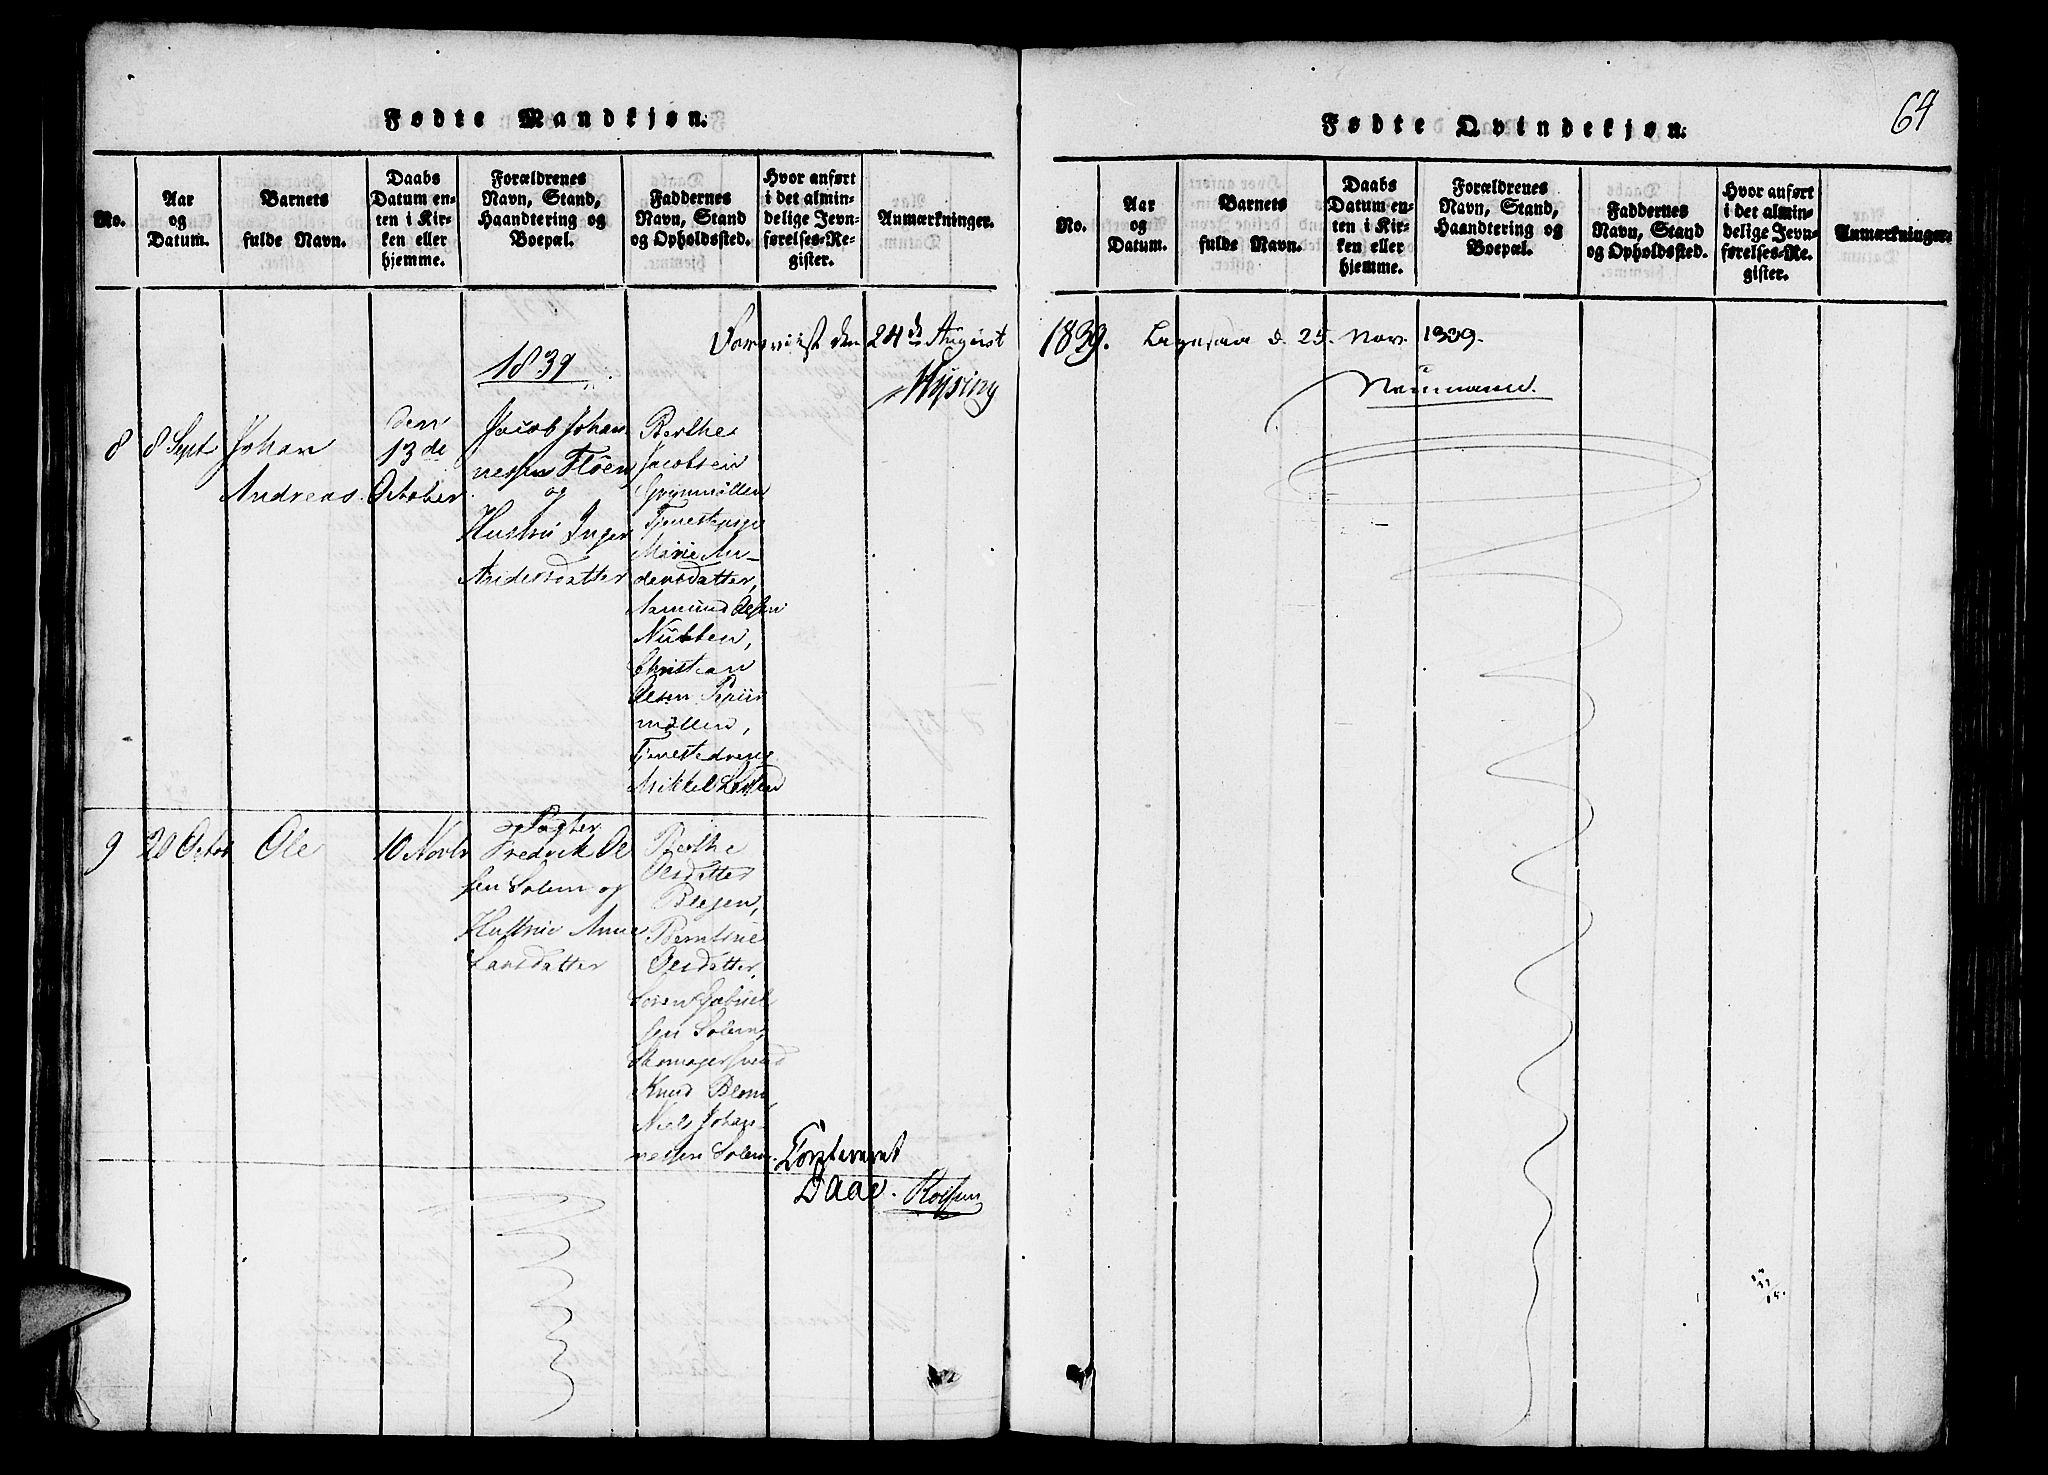 Fødte Mandkjøn.
No.
Aar
og
Datum.
Barnets
fulde Navn.
Daabs
Datum en-
ten i Kir-
ken eller
hjemme.
Forældrenes
Navn, Stand,
Haandtering og
Boepæl.
Faddernes
Navn, Stand
og Opholdssted.
Hvor anført
i det almin-
delige Jevn-
førelses-Re-
gister.
Anmærkninger.
den 24de August
1839
8
8 Sept
Johan
Andreas
den
13de
October
Jacob Johan
nessen Fløen
og
Hustru Inger
Andersdatter
Berthe
Jacobsen
Tjenestepige
Marie An-
dersdatter,
Aamund Olsen
Nubben,
Christian
Olsen
møllen,
Tjenestedreng
Mikkel
9
20 Octob
Ole
10 Novbr
Fredrik Ol
sen Solem og
Hustrue Anne
Larsdatter
Berthe
Olsdatter
Berntine
Olsdatter,
Søren Gabriel
sen Solem,
Skomagersvend
Knud Blom,
Niels Johan-
nessen Solem.
Daae.
Fødte Qvindekjøn.
64
No.
Aar
og
Datum.
Barnets
fulde Navn.
Daabs
Datum en-
ten i Kir-
ken eller
hjemme.
Forældrenes
Navn, Stand,
Haandtering og
Boepæl.
Faddernes
Navn, Stand
og Opholdssted.
Hvor anført
i det almin-
delige Jevn-
førelses-Re-
gister.
Anmærkninger.
1839. d. 25. Nov. 1839.
Neumann.